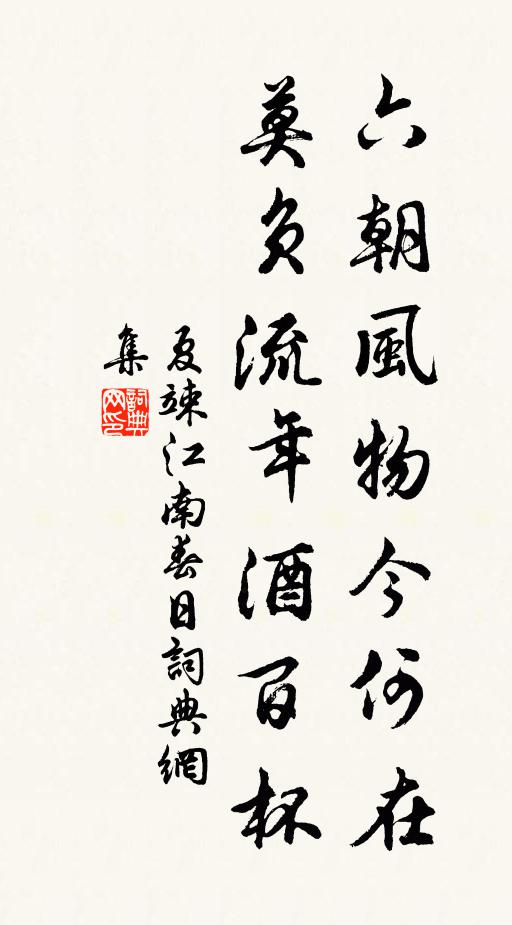 六朝風物今何在
莫負流年酒百杯
夏竦江南春日詞典網
集
詞典
网印